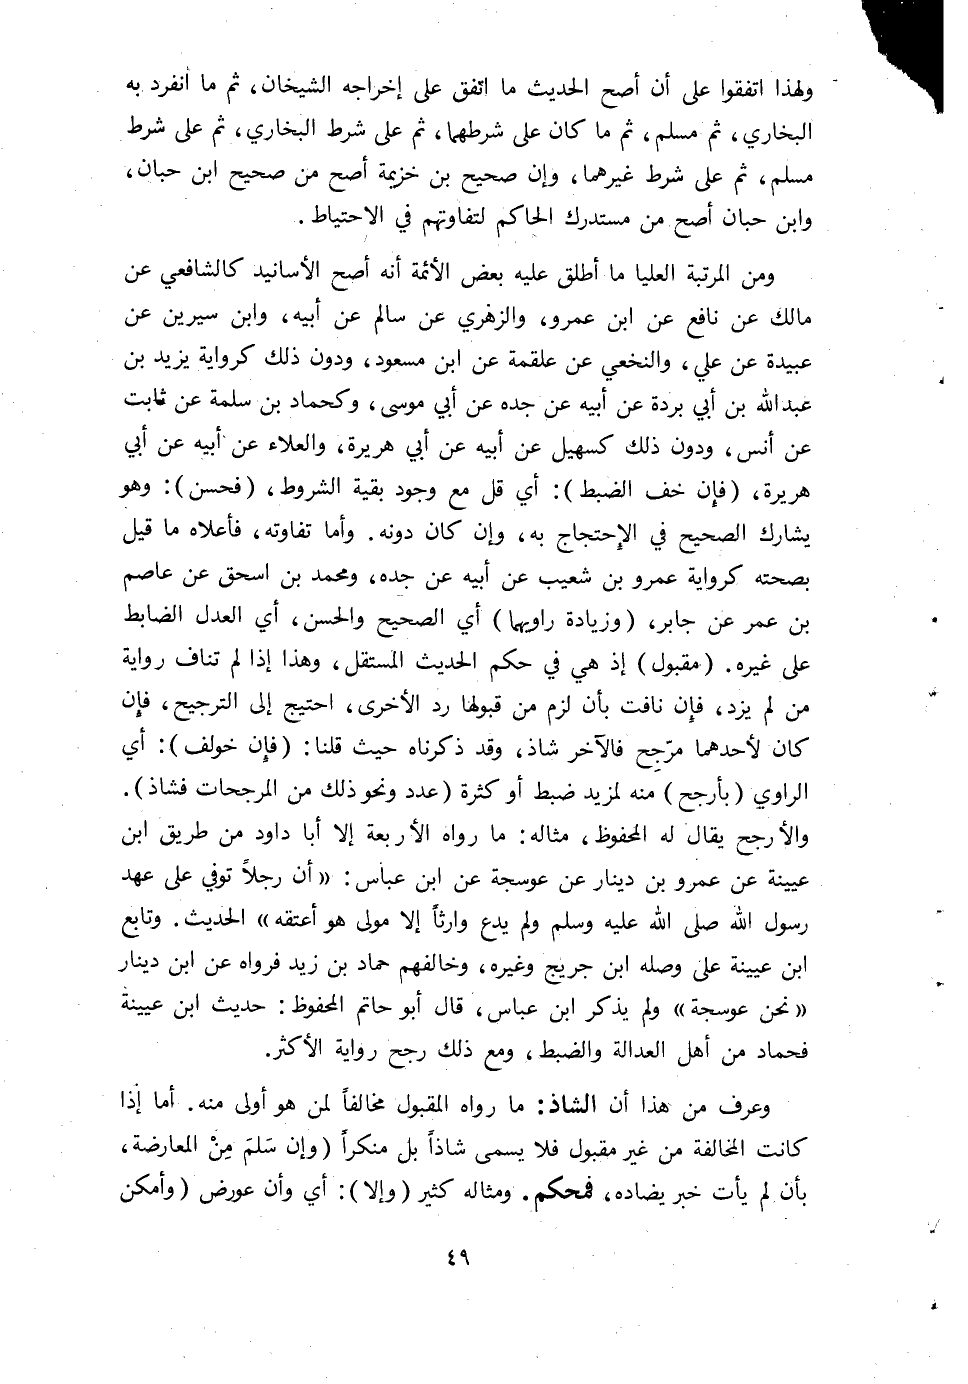 ولهذا اتفقوا على أن أصح الحديث ما اتفق على إخراجه الشيخان، ثم ما انفرد به
البخاري، ثم مسلم، ثم ما كان على شرطهما، ثم على شرط البخاري، ثم على شرط
مسلم، ثم على شرط غيرهما، وإن صحيح بن خزيمة أصح من صحيح ابن حبان،
وابن حبان أصح من مستدرك الحاكم لتفاوتهم في الاحتياط.
ومن المرتبة العليا ما أطلق عليه بعض الأئمة أنه أصح الأسانيد كالشافعي عن
مالك عن نافع عن ابن عمرو، والزهري عن سالم عن أبيه، وابن سيرين عن
عبيدة عن علي، والنخعي عن علقمة عن ابن مسعود، ودون ذلك كرواية يزيد بن
عبدالله بن أبي بردة عن أبيه عن جده عن أبي موسى، وكحماد بن سلمة عن ثابت
عن أنس، ودون ذلك كسهيل عن أبيه عن أبي هريرة، والعلاء عن أبيه عن أبي
هريرة، (فإن خف الضبط): أي قل مع وجود بقية الشروط، (فحسن): وهو
يشارك الصحيح في الإحتجاج به، وإن كان دونه. وأما تفاوته، فأعلاه ما قيل
بصحته كرواية عمرو بن شعيب عن أبيه عن جده، ومحمد بن اسحق عن عاصم
بن عمر عن جابر، (وزيادة راويها) أي الصحيح والحسن، أي العدل الضابط
على غيره. (مقبول) إذ هي في حكم الحديث المستقل، وهذا إذا لم تناف رواية
من لم يزد، فإن نافت بأن لزم من قبولها رد الأخرى، احتيج إلى الترجيح، فإن
كان لأحدهما مرّجح فالآخر شاذ، وقد ذكرناه حيث قلنا: (فإن خولف): أي
الراوي (بأرجح) منه لمزيد ضبط أو كثرة (عدد ونحو ذلك من المرجحات فشاذ).
والأرجح يقال له المحفوظ، مثاله: ما رواه الأربعة إلا أبا داود من طريق ابن
عيينة عن عمرو بن دينار عن عوسجة عن ابن عباس: «أن رجلاً توفي على عهد
رسول الله صلى الله عليه وسلم ولم يدع وارثاً إلا مولى هو أعتقه» الحديث. وتابع
ابن عيينة على وصله ابن جريج وغيره، وخالفهم حماد بن زيد فرواه عن ابن دينار
«نحن عوسجة» ولم يذكر ابن عباس، قال أبو حاتم المحفوظ: حديث ابن عيينة
فحماد من أهل العدالة والضبط، ومع ذلك رجح رواية الأكثر.
وعرف من هذا أن الشاذ: ما رواه المقبول مخالفاً لمن هو أولى منه. أما إذا
كانت المخالفة من غير مقبول فلا يسمى شاذاً بل منكراً (وإن سَلمَ مِنْ المعارضة،
بأن لم يأت خبر يضاده، فمحكم. ومثاله كثير (وإلا): أي وأن عورض (وأمكن
٤٩